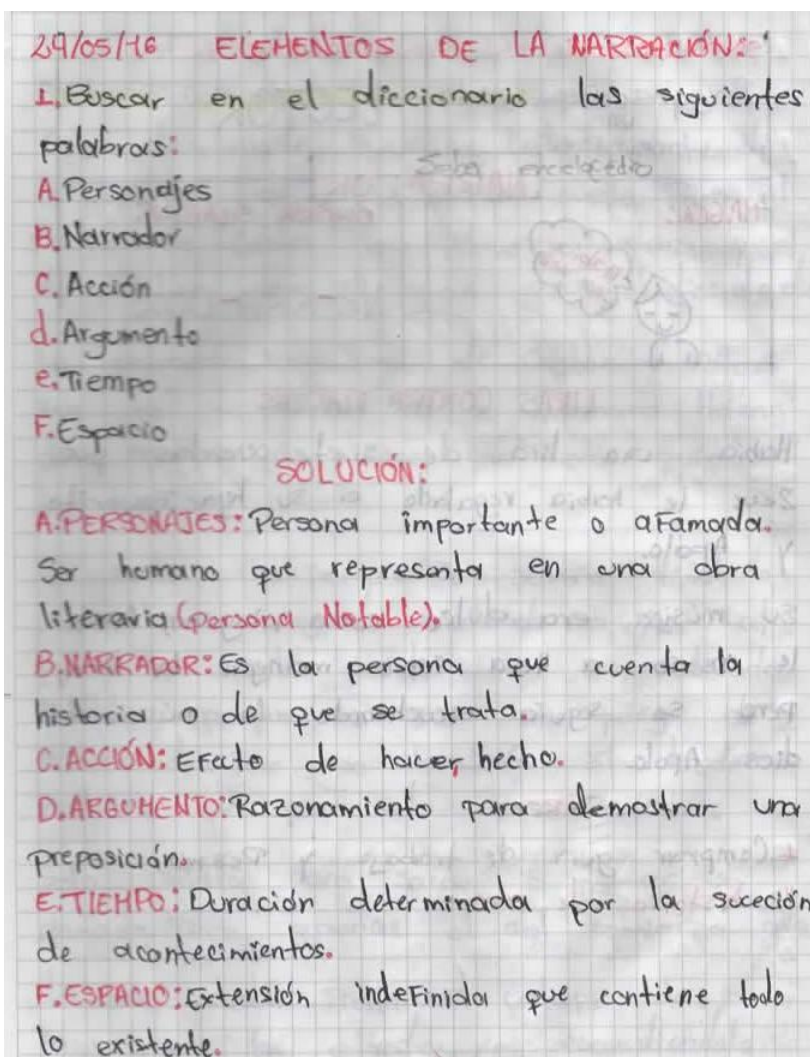 29/05/16 ELEMENTOS DE LA NARRACIÓN:
1. Buscar en el diccionario las siguientes
palabras:
A. Personajes
B. Narrador
C. Acción
d. Argumento
e. Tiempo
F. Espacio
SOLUCIÓN:
A. PERSONAJES: Persona importante o aFamada.
Ser humano que representa en una obra
literaria (persona Notable).
B. NARRADOR: Es la persona que cuenta la
historia o de que se trata.
C. ACCIÓN: EFecto de hacer, hecho.
D. ARGUMENTO: Razonamiento para demostrar una
preposición.
E. TIEMPO: Duración determinada por la suceción
de acontecimientos.
F. ESPACIO: Extensión indeFinida que contiene todo
lo existente.